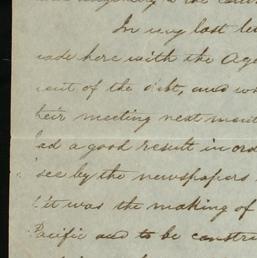 In my last le
ade here with the Age
ent of the debt, and wh
heir meeting next mont
ad a good result in ord
see by the newspapers
it was the making of
Pacific and to be constru